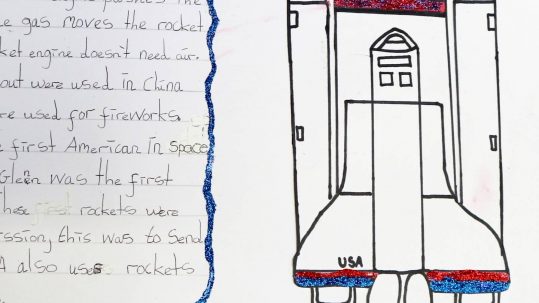 gas moves the rocket
engine doesn't need air.
out were used in China
used for fireworks.
first American in Space
Gleen was the first
these first rockets were
this was to send
A also uses rockets
USA